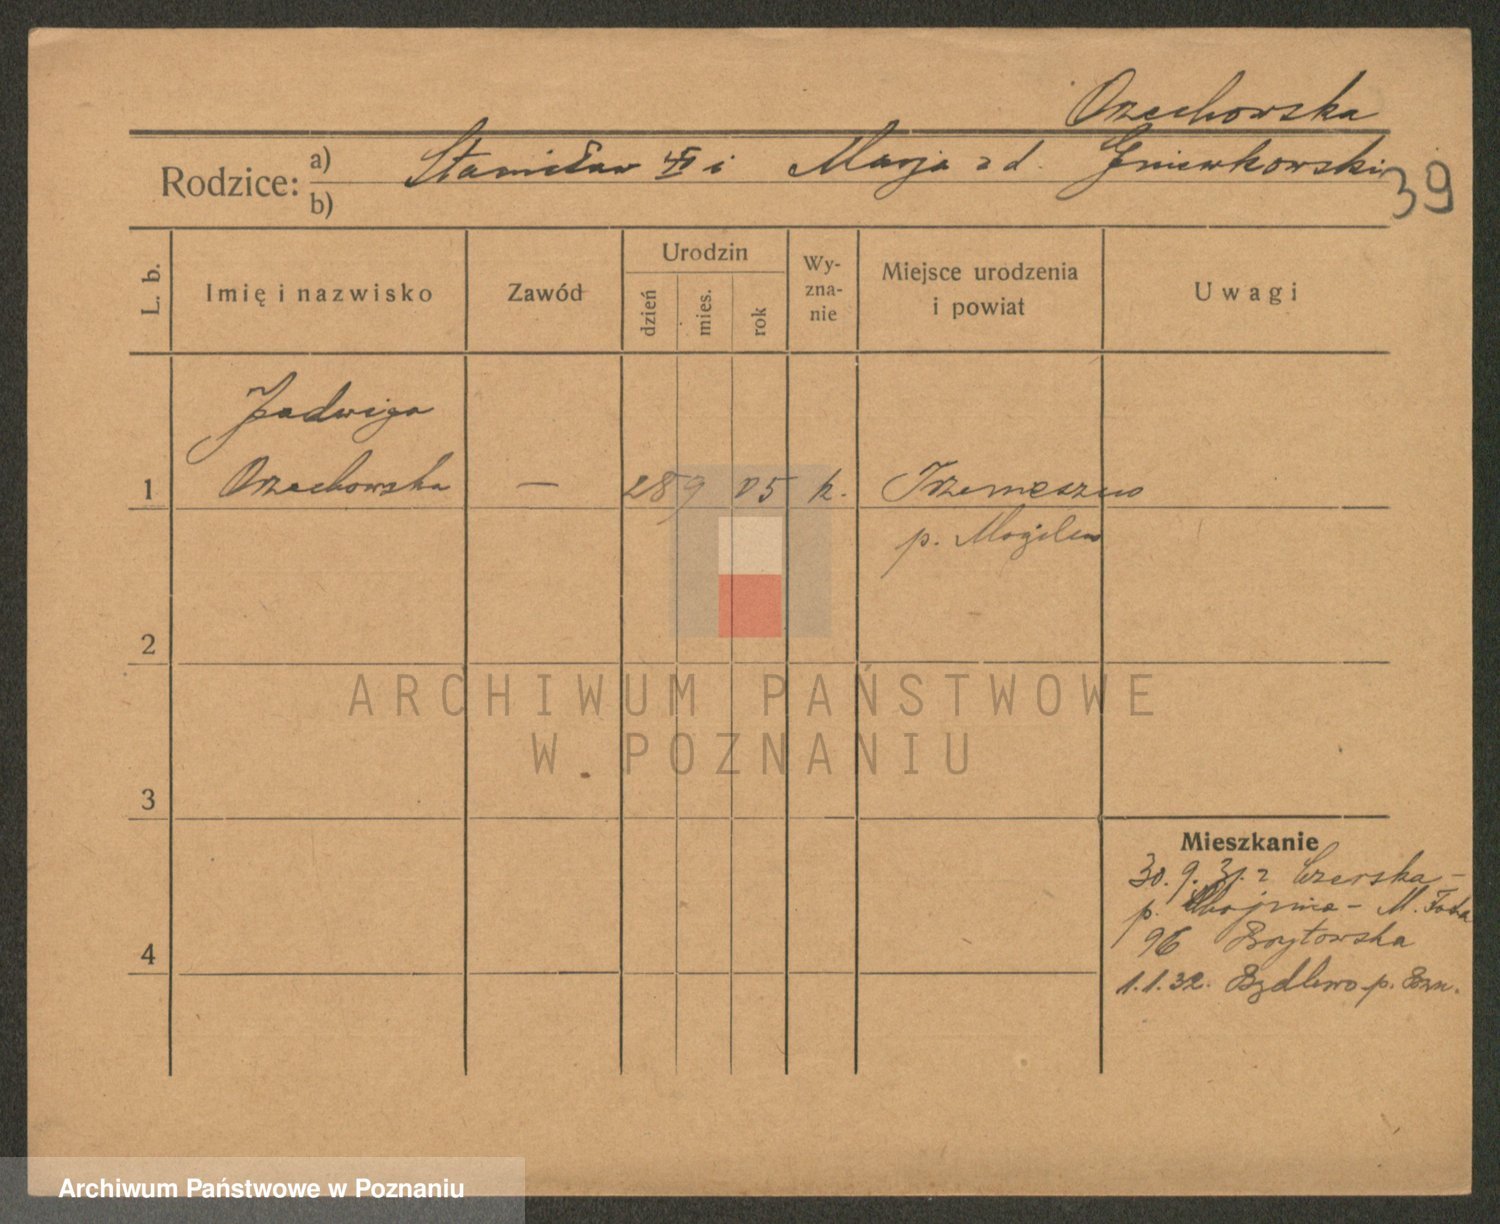 Orzechowska
Rodzice: a) Stanisław i Marja z d. Gniewkowski
b)
39
L. b.
Imię i nazwisko
Zawód
Urodzin
dzień
mies.
rok
Wy-
zna-
nie
Miejsce urodzenia
i powiat
Uwagi
Jadwiga
1 Orzechowska — 28 9 05 k. Trzemeszno
p. Mogilno
2
ARCHIWUM PAŃSTWOWE
W POZNANIU
3
Mieszkanie
30.9.31. z Czerska -
p. Chojnice - M. Focha
96
4
1.1.32. p. Pozn.
Archiwum Państwowe w Poznaniu